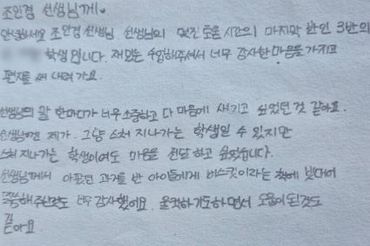 조인경 선생님께♥
안녕하세요 조인경 선생님 선생님의 멋진 도움 시간의 마지막 반인 3반의
학생입니다. 재밌는 수업해주셔서 너무 감사한 마음을 가지고
편지를 써 내려가요.
선생님의 말 한마디가 너무 소중하고 다 마음에 새기고 싶었던 것 같아요.
선생님껜 제가 그냥 스쳐 지나가는 학생일 수 있지만
스쳐 지나가는 학생이어도 마음을 전달하고 싶었습니다.
선생님께서 아팠던 과거를 반 아이들에게 버스킷이라는 책에 빗대어
주신것도 너무 감사했어요. 울컥하기도하면서 도움이된것도
같아요